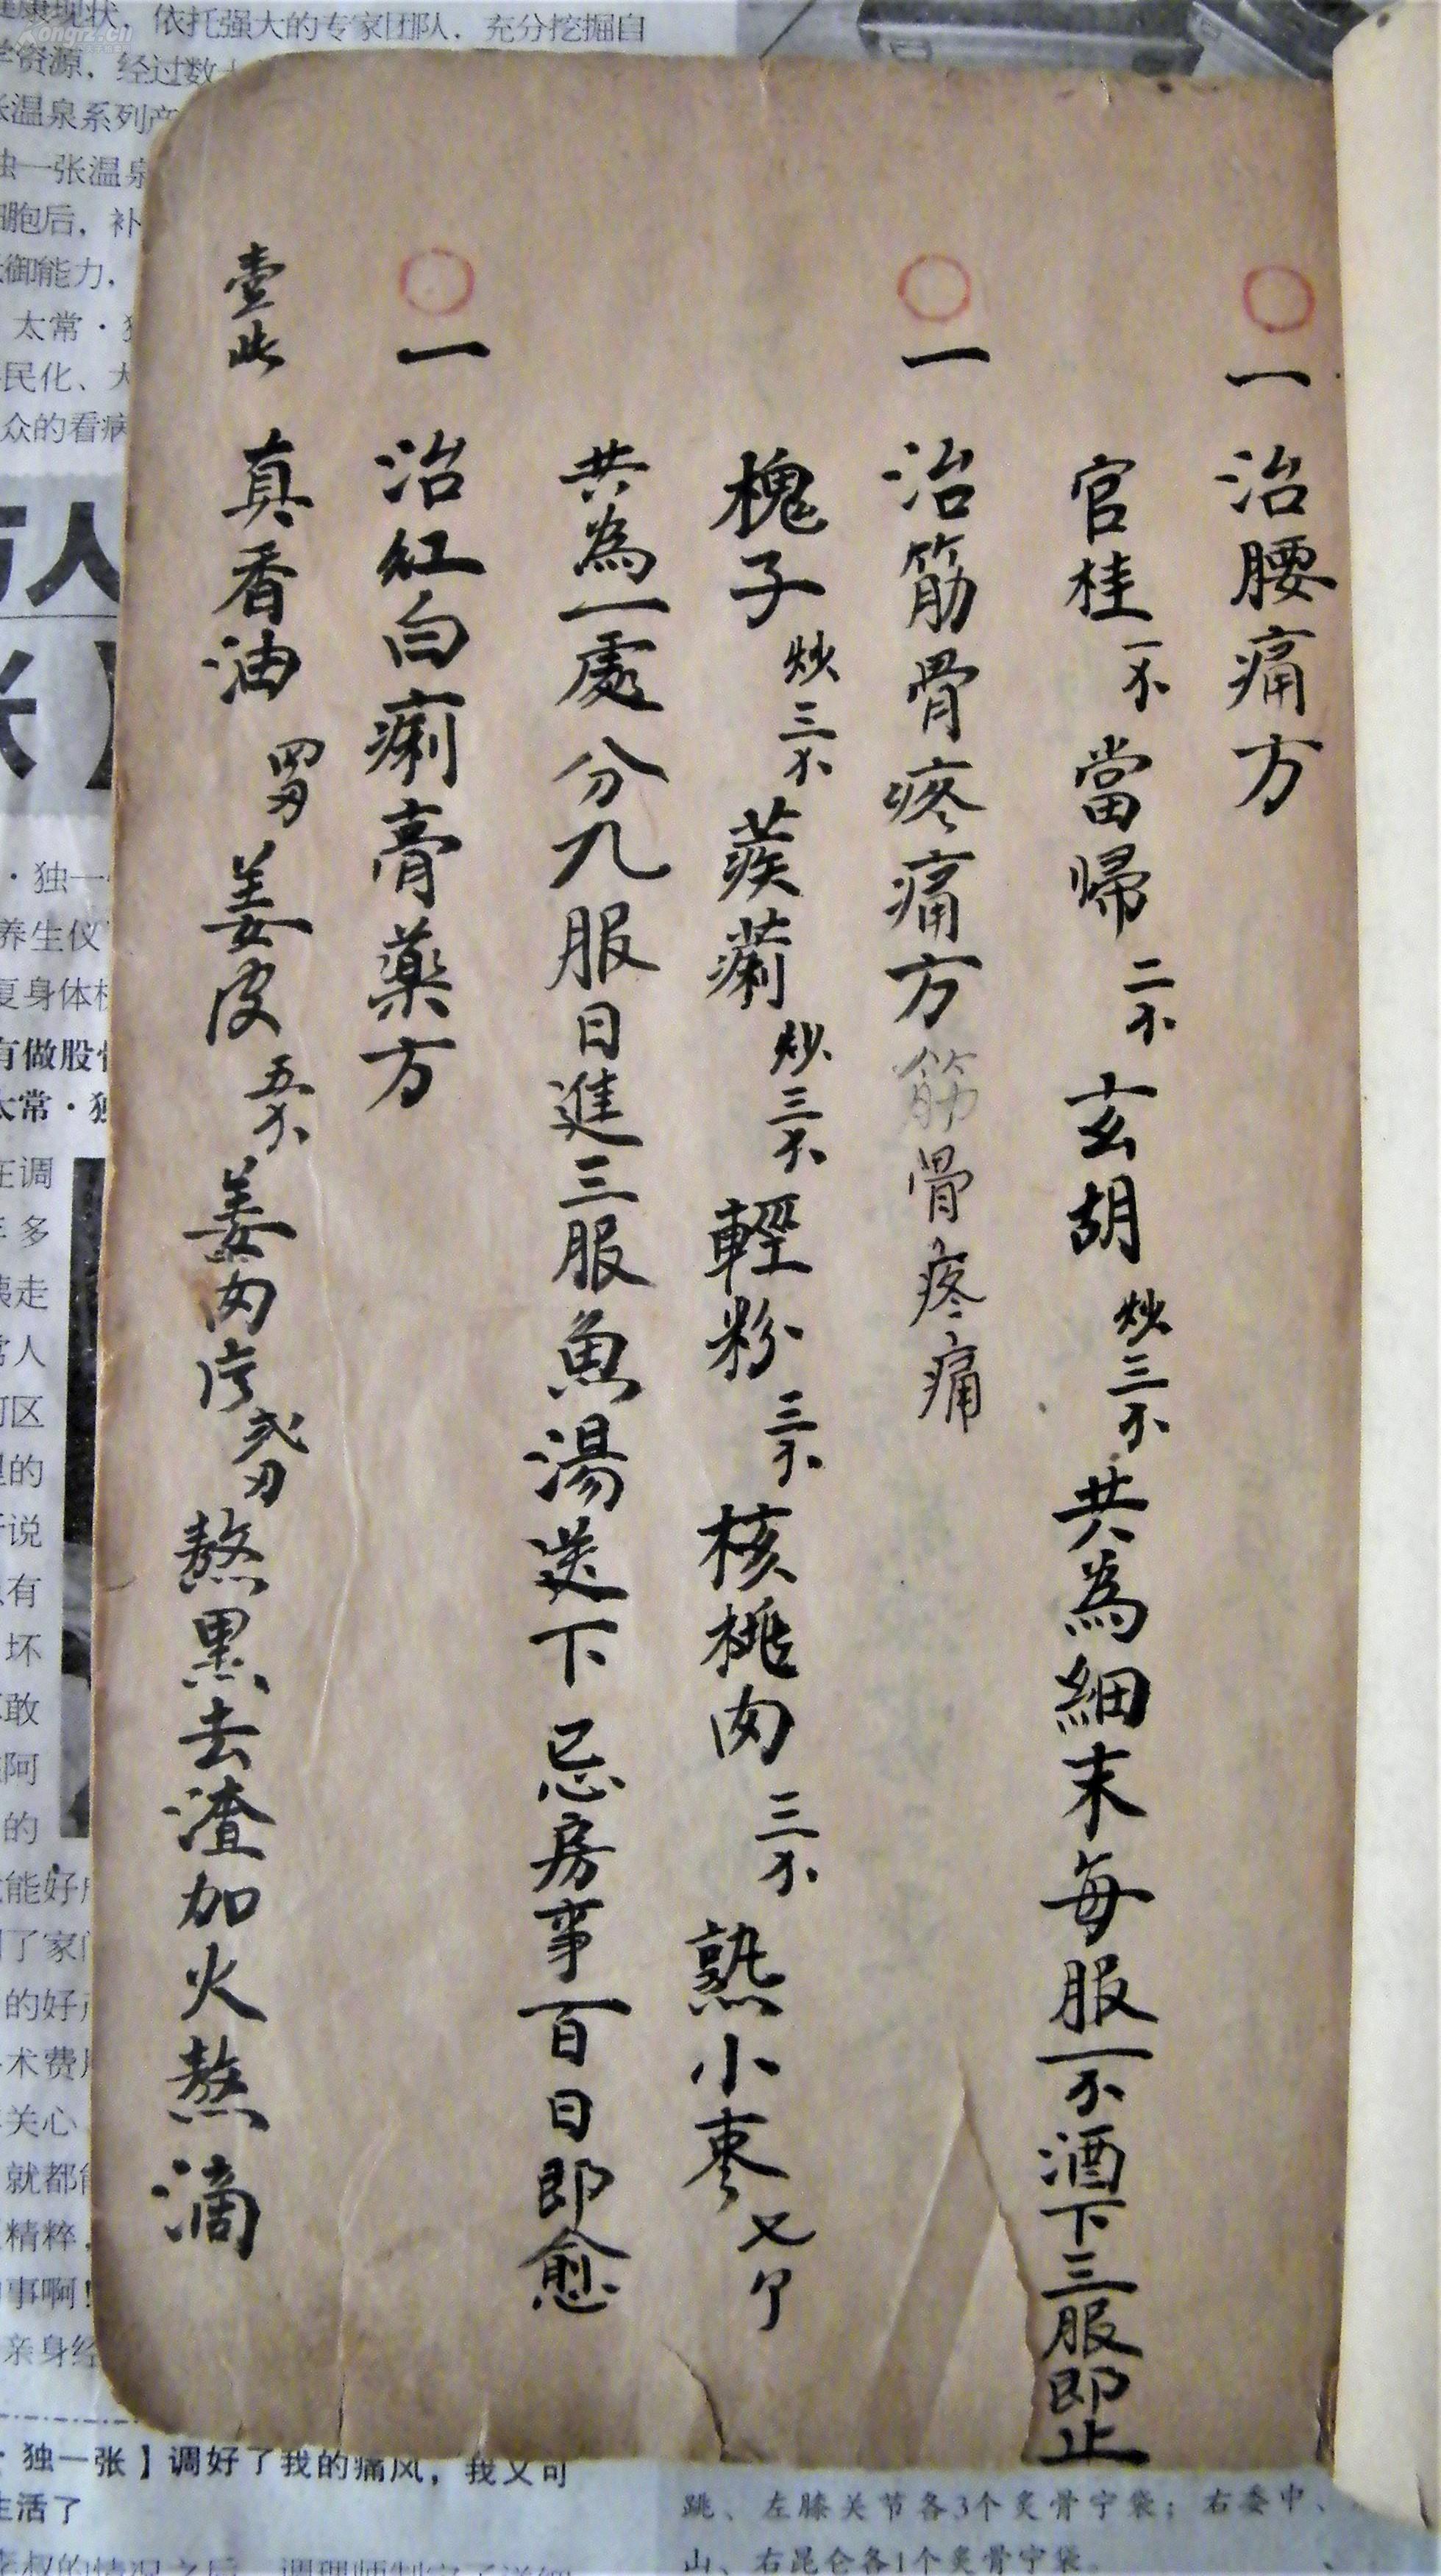 一 治腰痛方
官桂 一不 當歸 二不 玄胡 炒三不 共為細末每服一不酒下三服即止
一 治筋骨疼痛方 筋骨疼痛
槐子 炒三不 蒺蔾 炒三不 輕粉 三不 核桃肉 三不 熟小棗
共為一處分九服日進三服魚湯送下忌房事百日即愈
一 治紅白痢膏藥方
壹此 真香油 姜皮 五不 姜肉 熬黑去渣加火熬滴
依托强大的专家团队，充分挖掘自
学资源，经过数
张温泉系列产
独一张温泉
细胞后，补
御能力，
太常·独
民化、大
众的看病
·独一
养生仪
复身体机
有做股骨
太常·独
在调
多
走
常人
区
里的
说
有
坏
敢
阿
的
能好
了家
的好
术费
关心
就都能
精粹，
事啊！
亲身经
·独一张】调好了我的痛风，我又可
生活了
跳、左膝关节各3个炙骨宁袋；右委中、
山、右昆仑各1个炙骨宁袋。